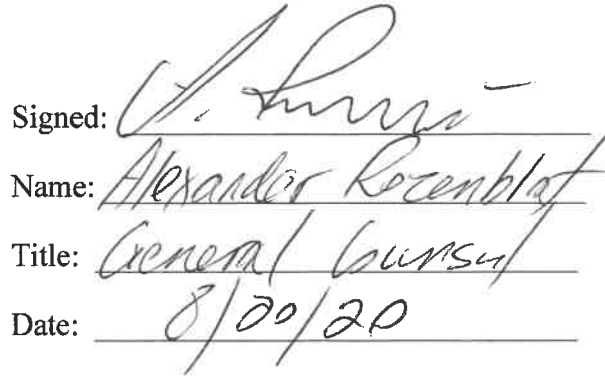 Signed:
Name: Alexander Rozenblat
Title: General Counsel
Date: 8/20/20